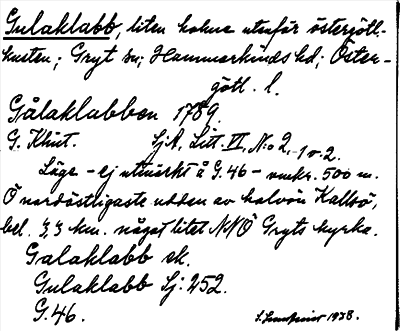 Gulaklabb, liten holme utanför östergötl-
kusten; Gryt sn; Hammarkinds hd; Öster-
götl. l.
Gålaklabben 1789.
G. Klint. SjA, Litt. VI, N:o 2,-1 o. 2.
Läge - ej utmärkt å G.46 - omkr. 500 m.
Ö nordöstligaste udden av halvön Kallsö,
bel. 3,3 km. något litet NNÖ Gryts kyrka.
Galaklabb ek.
Gulaklabb Sj: 252.
G.46. 1938.